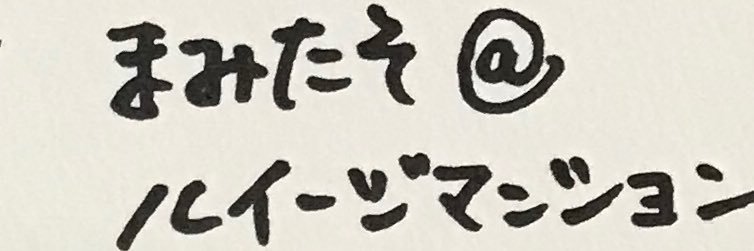 まみたそ@
ルイージマンション